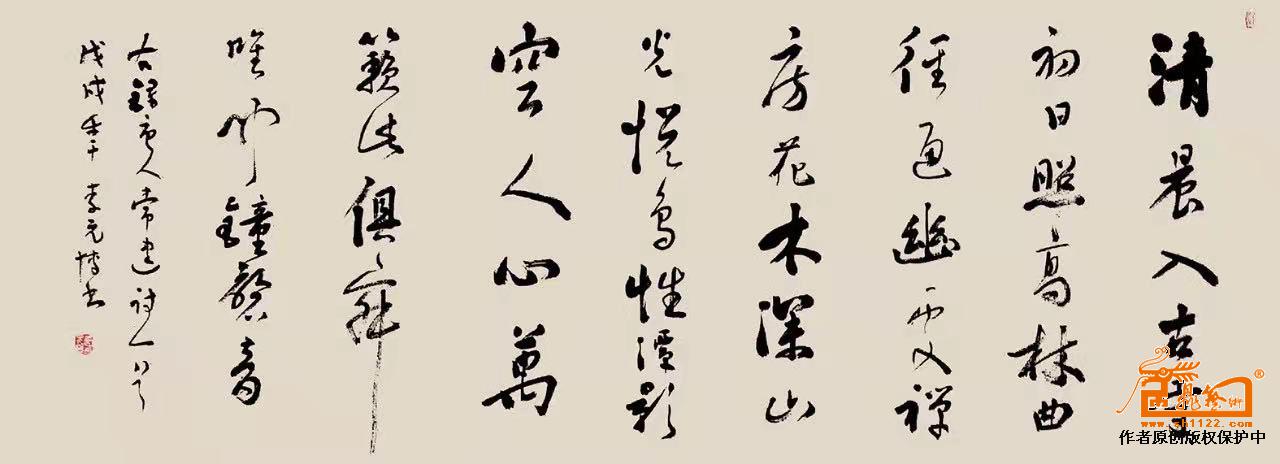 清晨入古寺
初日照高林曲
徑通幽處禪
房花木深山
光悦鳥性潭影
空人心萬
籟此俱寂
唯聞鐘磬音
右録唐人常建詩一首
戊戌年 李元博书
®
www.sh1122.com
作者原创版权保护中